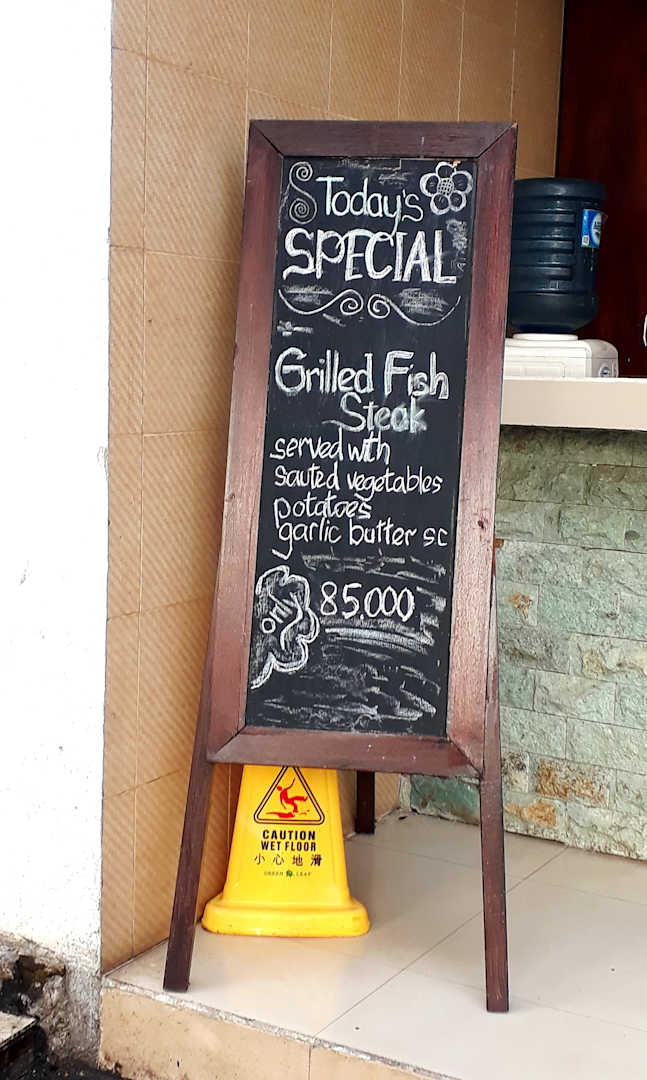 Today's
SPECIAL
Grilled Fish
Steak
served with
sauted vegetables
potatoes
garlic butter sc
only 85.000
CAUTION
WET FLOOR
小心地滑
GREEN LEAF